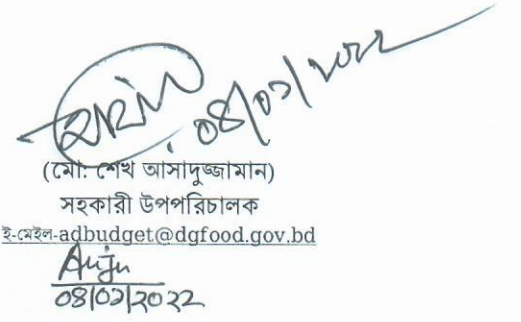 ০৪/০১/২০২২
(মো: শেখ আসাদুজ্জামান)
সহকারী উপপরিচালক
ই-মেইল-adbudget@dgfood.gov.bd
Anju
০৪/০১/২০২২